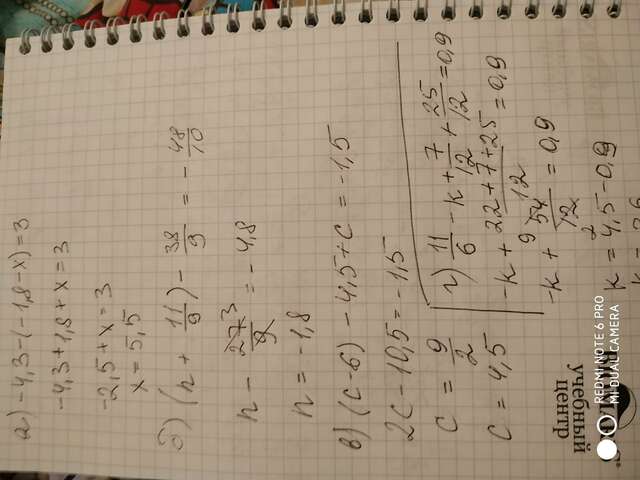 а) -4,3-(-1,8-x)=3
-4,3+1,8+x=3
-2,5+x=3
x=5,5
б) (n+11/9)-38/9=-48/10
n-27/9 3=-4,8
n=-1,8
в) (c-6)-4,5+c=-1,5
2c-10,5=-1,5
c=9/2
c=4,5
г) 11/6-k+7/12+25/12=0,9
-k+(22+7+25)/12=0,9
-k+54/12 9/2=0,9
k=4,5-0,9
k
учебный
центр
REDMI NOTE 6 PRO
MI DUAL CAMERA